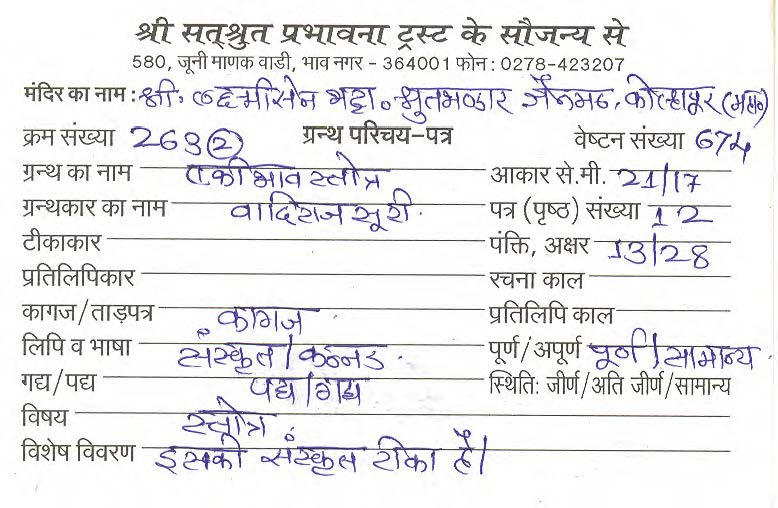 श्री सत्श्रुत प्रभावना ट्रस्ट के सौजन्य से
580, जूनी माणक वाडी, भाव नगर - 364001 फोन : 0278-423207
मंदिर का नाम : श्री. लक्ष्मीसेन भट्टा. श्रुतभंडार जैनमठ, कोल्हापूर (महा०)
क्रम संख्या 263 (2) ग्रन्थ परिचय-पत्र वेष्टन संख्या 674
ग्रन्थ का नाम एकीभाव स्तोत्र आकार से.मी. 21/17
ग्रन्थकार का नाम वादिराज सूरी. पत्र (पृष्ठ) संख्या 12
टीकाकार पंक्ति, अक्षर 13/28
प्रतिलिपिकार रचना काल
कागज/ताड़पत्र कागज प्रतिलिपि काल
लिपि व भाषा संस्कृत/कन्नड. पूर्ण/अपूर्ण पूर्ण/सामान्य
गद्य/पद्य पद्य/गद्य स्थिति: जीर्ण/अति जीर्ण/सामान्य
विषय स्तोत्र
विशेष विवरण इसकी संस्कृत टीका है।